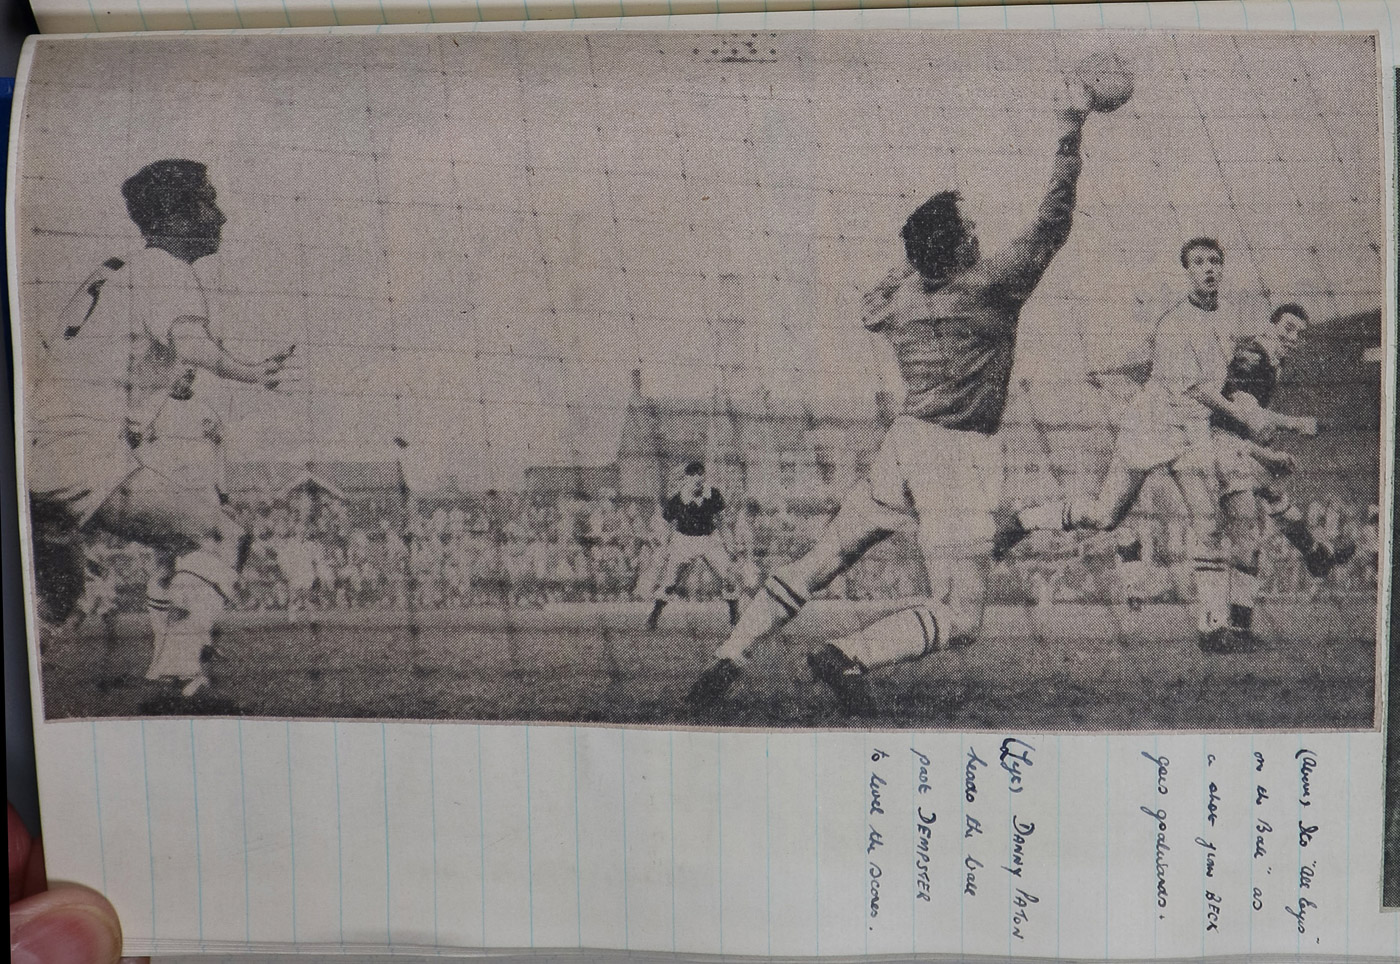 (Above) Its "All Eyes"
on the Ball" as
a shot from BECK
goes goalwards.
DANNY PATON
heads the ball
past DEMPSTER
to level the scores.